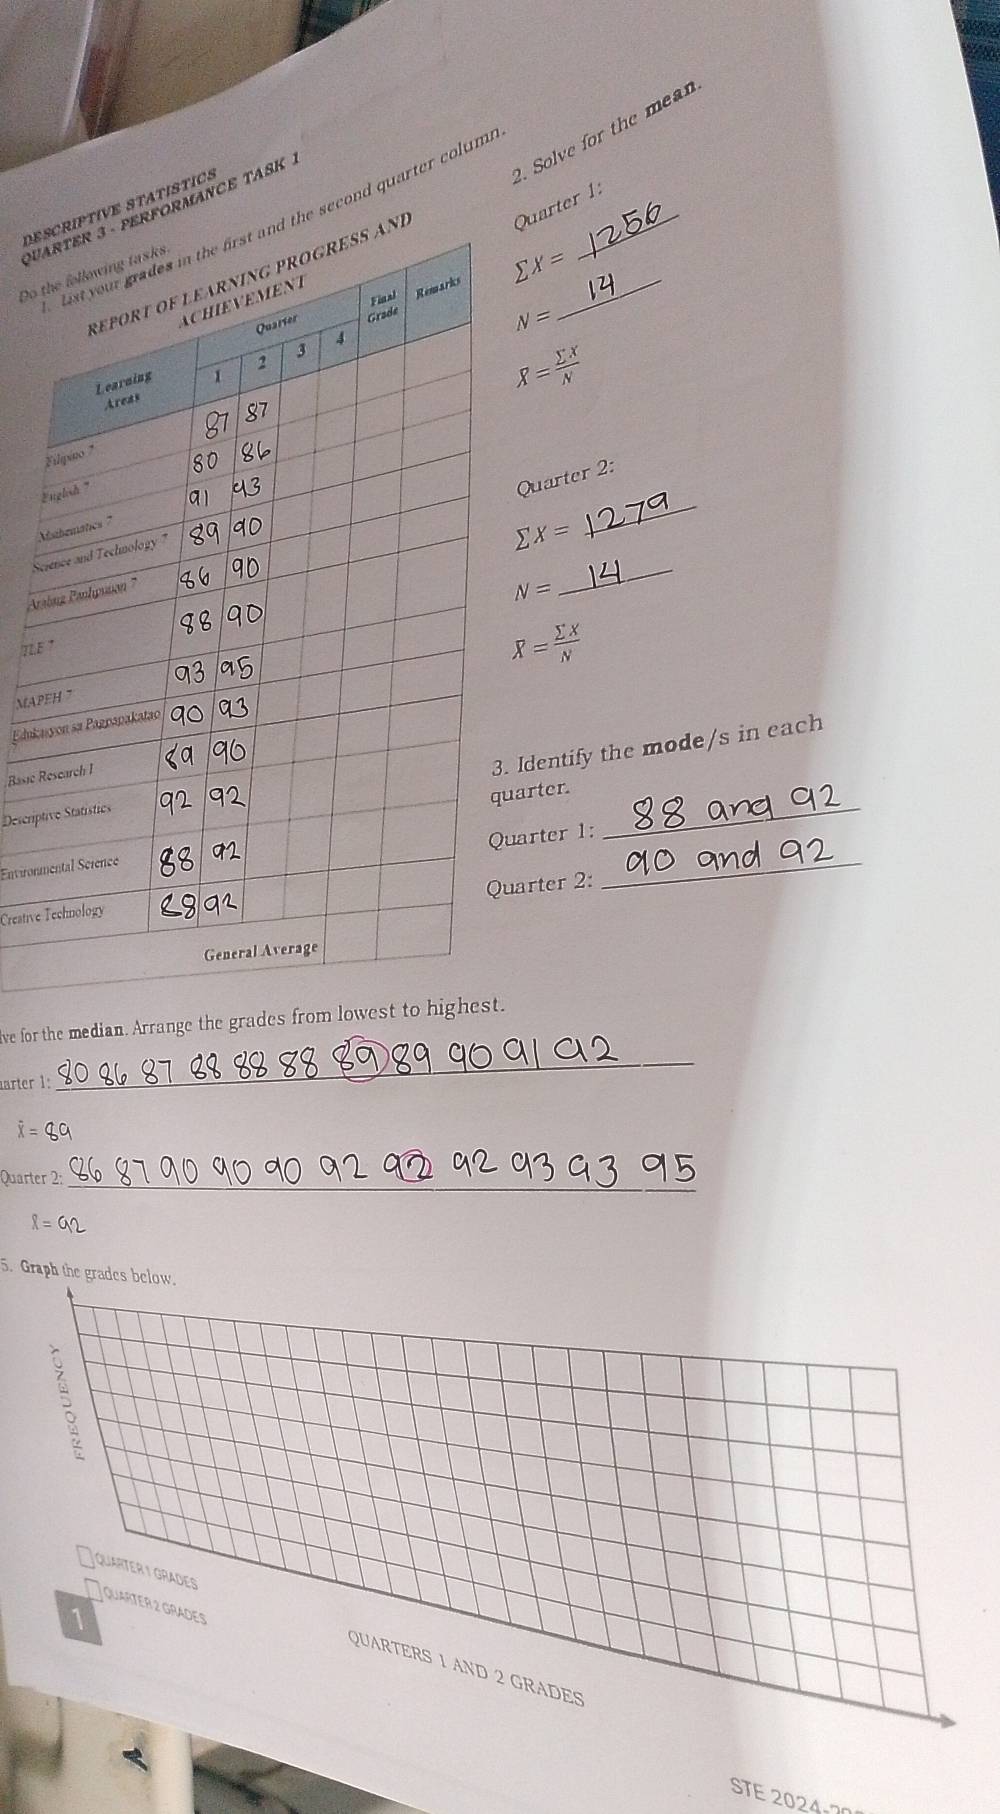 DESCRIPTIVE STATISTICS
QUARTER 3 - PERFORMANCE TASK 1
Do the following tasks.
1. List your grades in the first and the second quarter column.
REPORT OF LEARNING PROGRESS AND
ACHIEVEMENT
Learning Areas Quarter Final Grade Remarks
1 2 3 4
Filipino 7 87 87
English 7 80 86
Mathematics 7 91 93
Science and Technology 7 89 90
Araling Panlipunan 7 86 90
TLE 7 88 90
MAPEH 7 93 95
Edukasyon sa Pagpapakatao 90 93
Basic Research I 89 90
Descriptive Statistics 92 92
Environmental Science 88 92
Creative Technology 88 92
General Average
2. Solve for the mean.
Quarter 1:
ΣX = 1256
N = 14
x̄ = ΣX/N
Quarter 2:
ΣX = 1279
N = 14
x̄ = ΣX/N
3. Identify the mode/s in each
quarter.
Quarter 1: 88 and 92
Quarter 2: 90 and 92
lve for the median. Arrange the grades from lowest to highest.
uarter 1: 80 86 87 88 88 88 89 89 90 91 92
x̃ = 89
Quarter 2: 86 87 90 90 90 92 92 92 93 93 95
x̃ = 92
5. Graph the grades below.
FREQUENCY
QUARTER 1 GRADES
QUARTER 2 GRADES
1
QUARTERS 1 AND 2 GRADES
STE 2024-